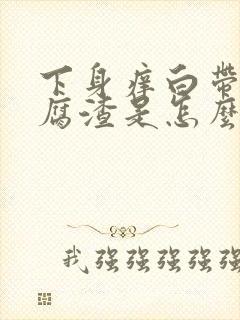 下身痒白带
腐渣是怎麽
我强强强强强